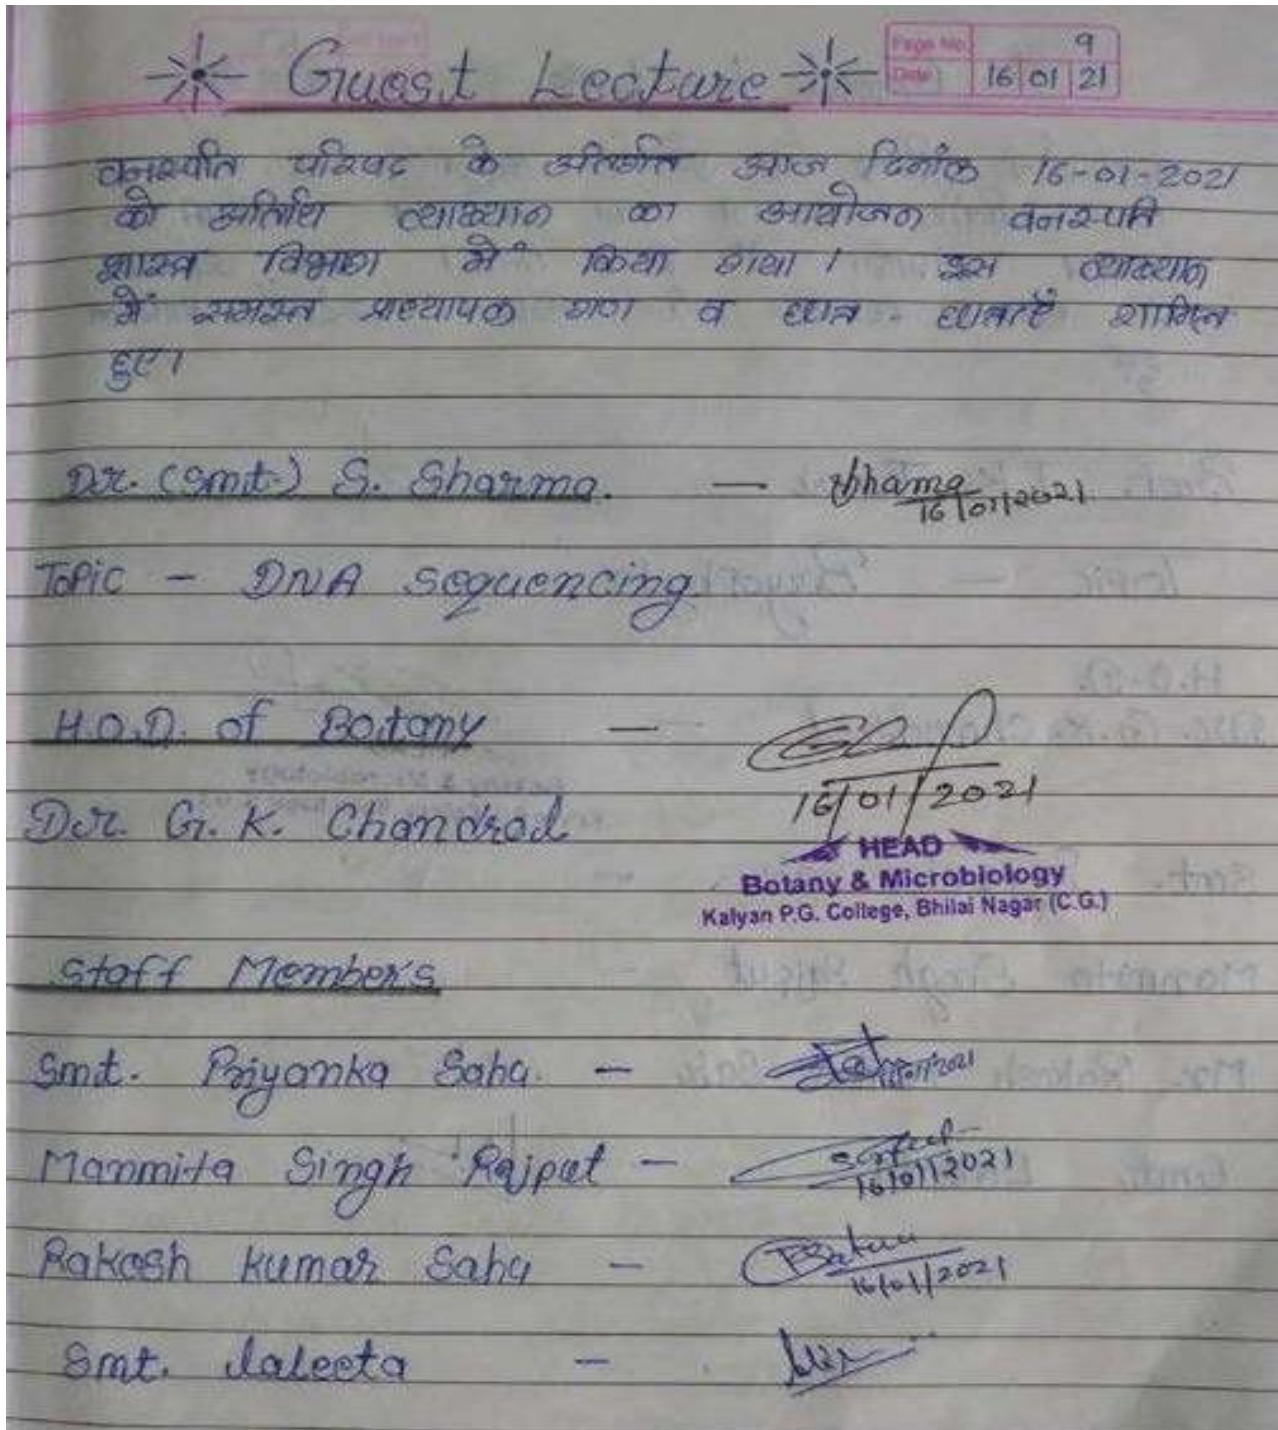 Guest Lecture
Page No. 9
Date 16 01 21
वनस्पति परिषद के अंतर्गत आज दिनांक 16-01-2021
को अतिथि व्याख्यान का आयोजन वनस्पति
शास्त्र विभाग में किया गया। इस व्याख्यान
में समस्त प्राध्यापक गण व छात्र - छात्राएँ शामिल
हुए।
Dr. (Smt.) S. Sharma. —
16/01/2021
Topic - DNA Sequencing
H.O.D. of Botany —
16/01/2021
Dr. G. K. Chandrol
HEAD
Botany & Microbiology
Kalyan P.G. College, Bhilai Nagar (C.G.)
Staff Member's
Smt. Priyanka Sahu. —
Manmita Singh Rajput —
16/01/2021
Rakesh Kumar Sahu —
16/01/2021
Smt. Laleeta —